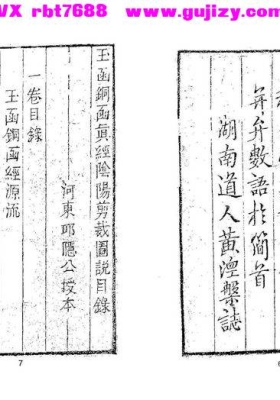 VX rbt7688 www.gujizy.com
并弁數語於簡首
湖南道人黃澄槃誌
玉函銅函眞經陰陽剪裁圖說目錄
河東邱隱公授本
一卷目錄
玉函銅函經源流
7